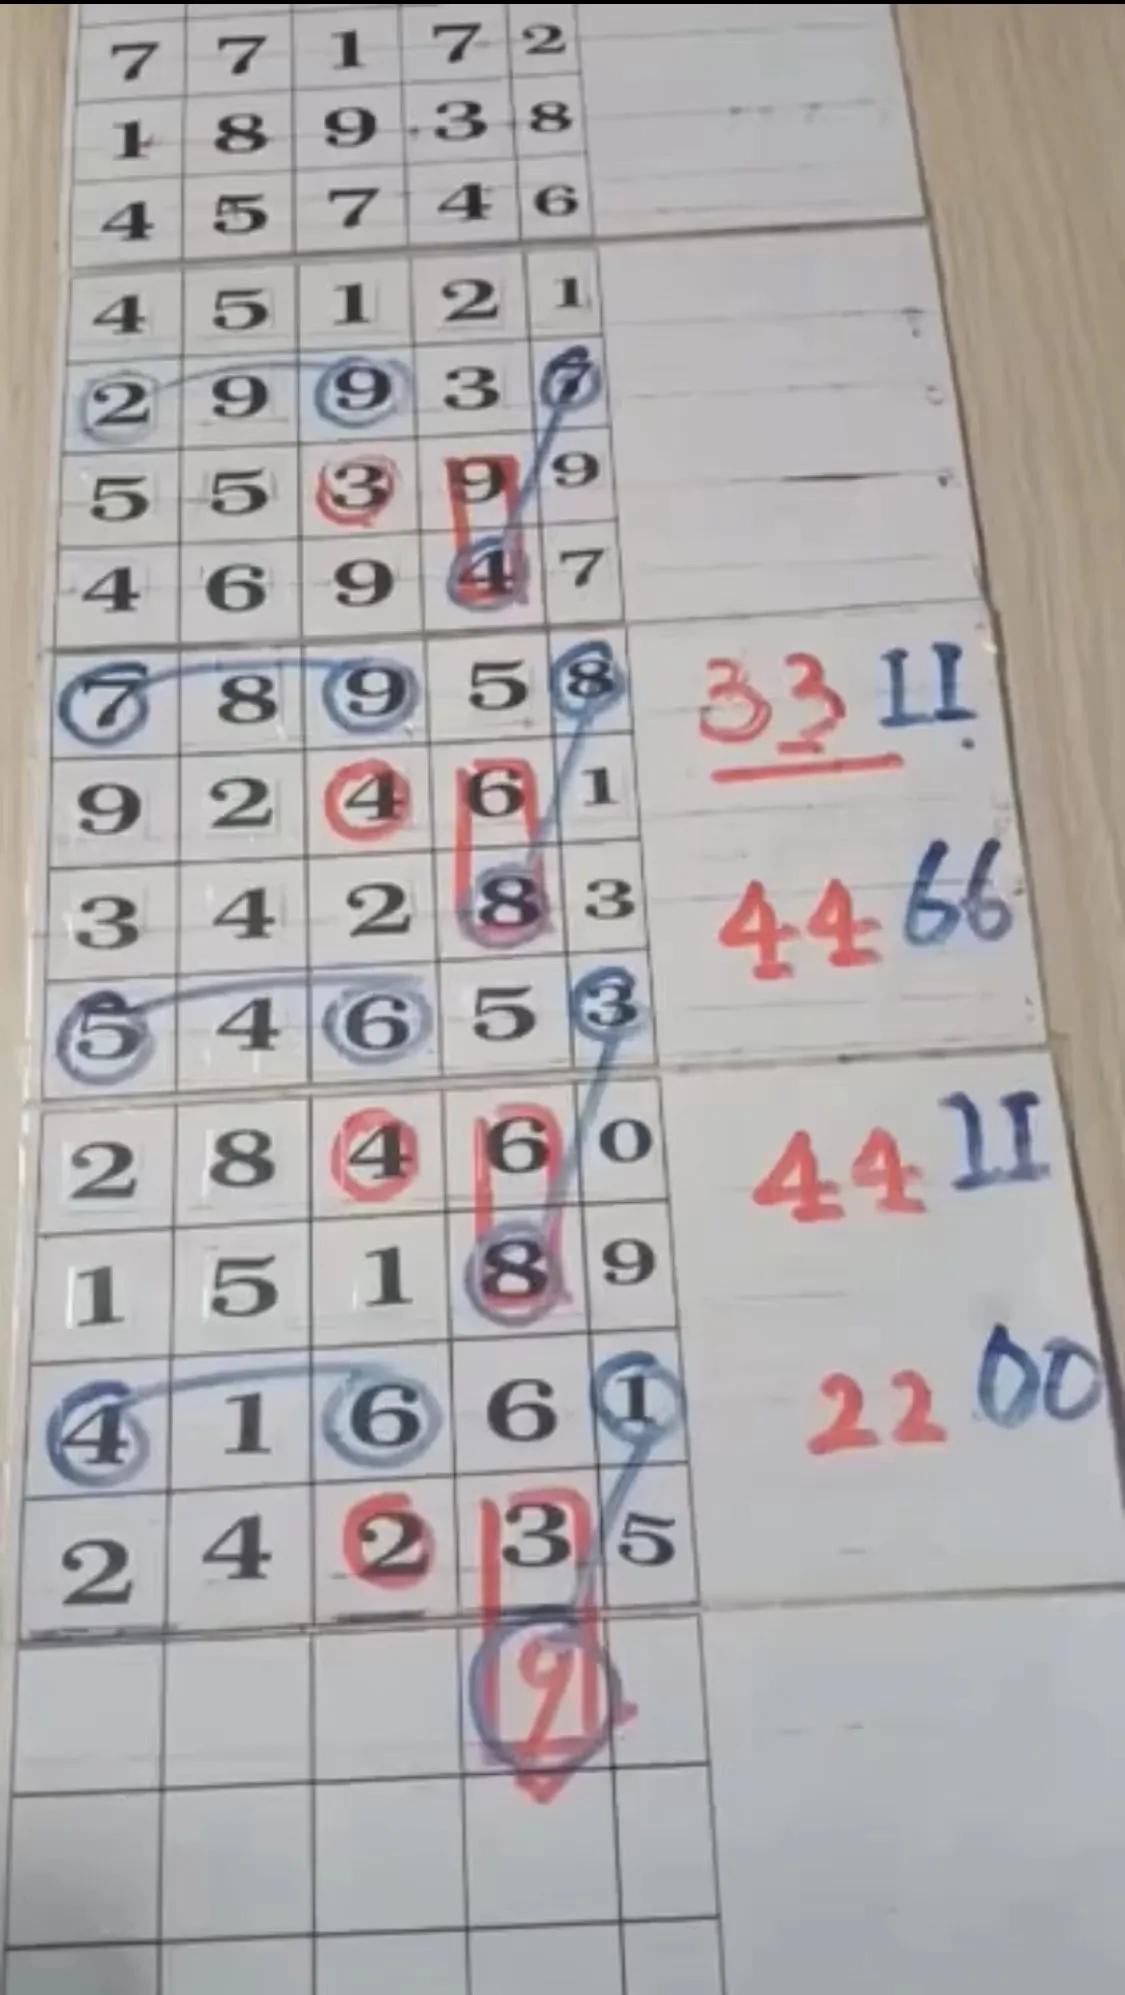 7 7 1 7 2
1 8 9 3 8
4 5 7 4 6
4 5 1 2 1
2 9 9 3 7
5 5 3 9 9
4 6 9 4 7
7 8 9 5 8 33 11
9 2 4 6 1
3 4 2 8 3 44 66
5 4 6 5 3
2 8 4 6 0 44 11
1 5 1 8 9
4 1 6 6 1 22 00
2 4 2 3 5
9